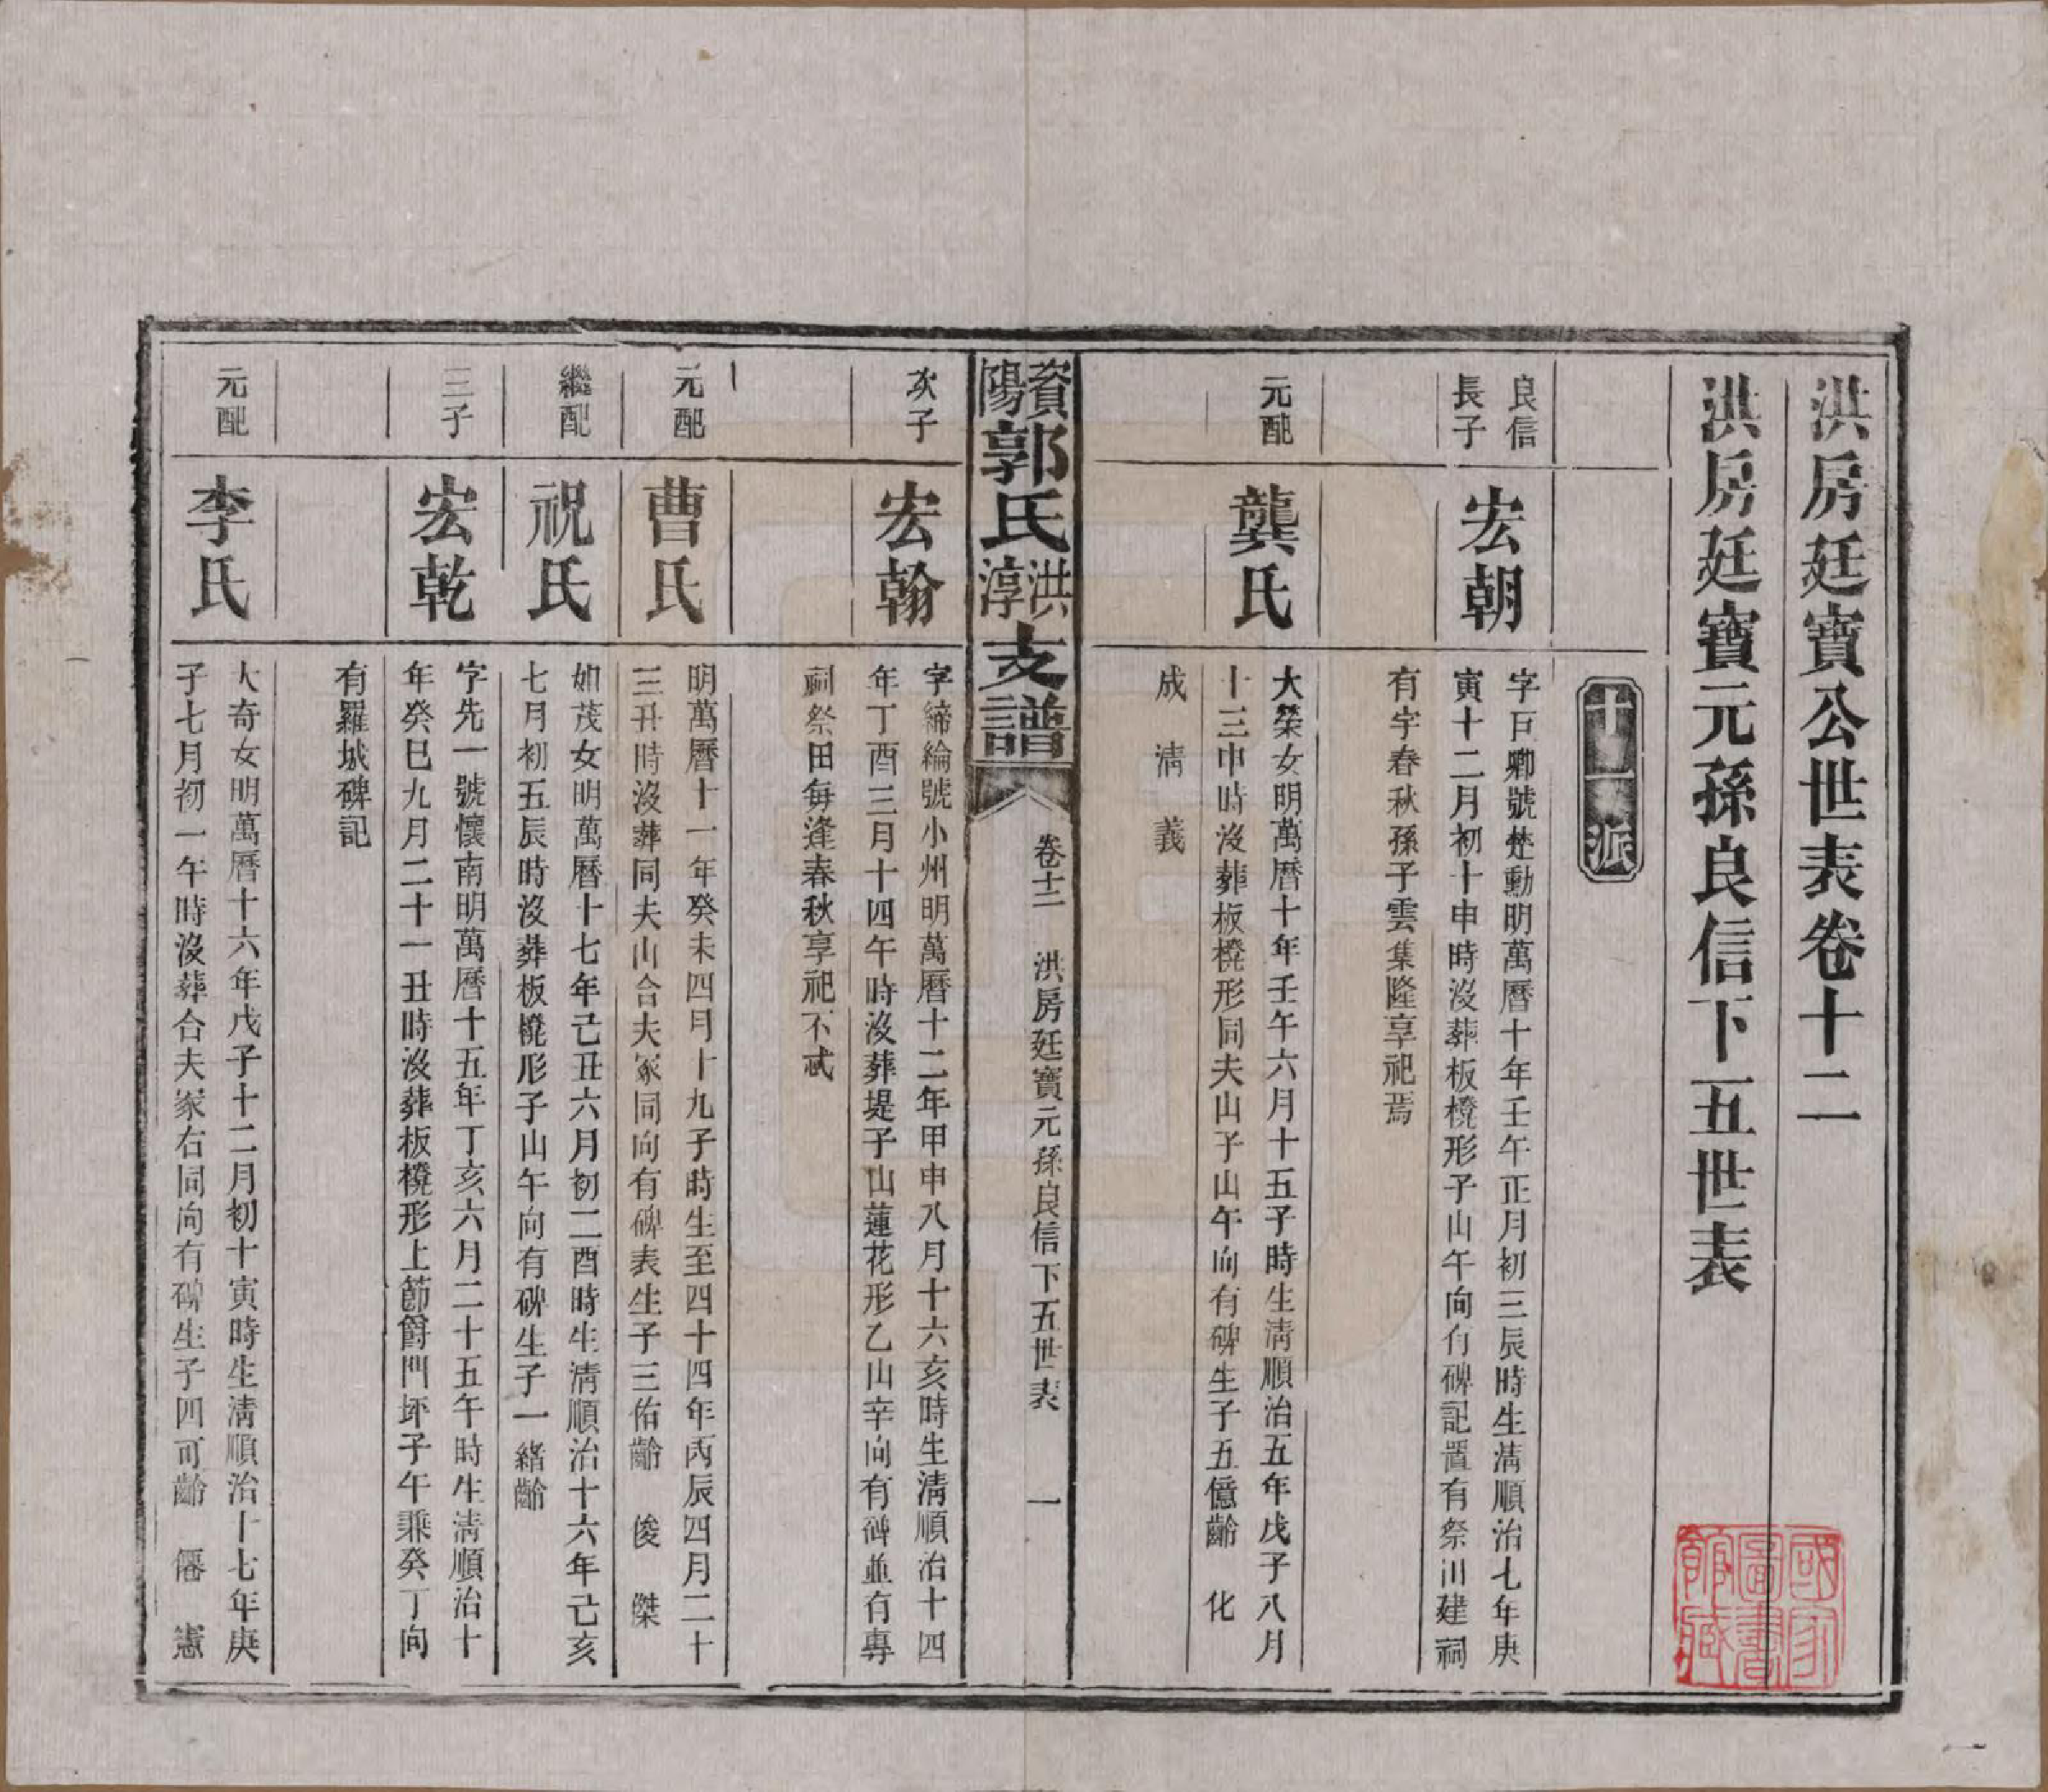 洪房廷寶公世表卷十二
洪房廷寶元孫良信下五世表
十一派
良信
長子
宏朝
字巨卿號楚勳明萬曆十年壬午正月初三辰時生清順治七年庚
寅十二月初十申時沒葬板櫈形子山午向有碑記置有祭田建祠
有字春秋孫子雲集隆享祀焉
元配
龔氏
大榮女明萬曆十年壬午六月十五子時生清順治五年戊子八月
十三申時沒葬板櫈形同夫山子山午向有碑生子五億齡 化
成 清 義
資陽郭氏洪淳支譜
卷十二 洪房廷寶元孫良信下五世表 一
次子
宏翰
字締綸號小州明萬曆十二年甲申八月十六亥時生清順治十四
年丁酉三月十四午時沒葬堤子山蓮花形乙山辛向有碑並有專
祠祭田每逢春秋享祀不忒
元配
曹氏
明萬曆十一年癸未四月十九子時生至四十四年丙辰四月二十
三丑時沒葬同夫山合夫冢同向有碑表生子三佑齡 俊 傑
繼配
祝氏
如茂女明萬曆十七年己丑六月初二酉時生清順治十六年己亥
七月初五辰時沒葬板櫈形子山午向有碑生子一緒齡
三子
宏乾
字先一號懷南明萬曆十五年丁亥六月二十五午時生清順治十
年癸巳九月二十一丑時沒葬板櫈形上節爵門坏子午乘癸丁向
有羅城碑記
元配
李氏
大奇女明萬曆十六年戊子十二月初十寅時生清順治十七年庚
子七月初一午時沒葬合夫冢右同向有碑生子四可齡 僊 憲
國家圖書館藏